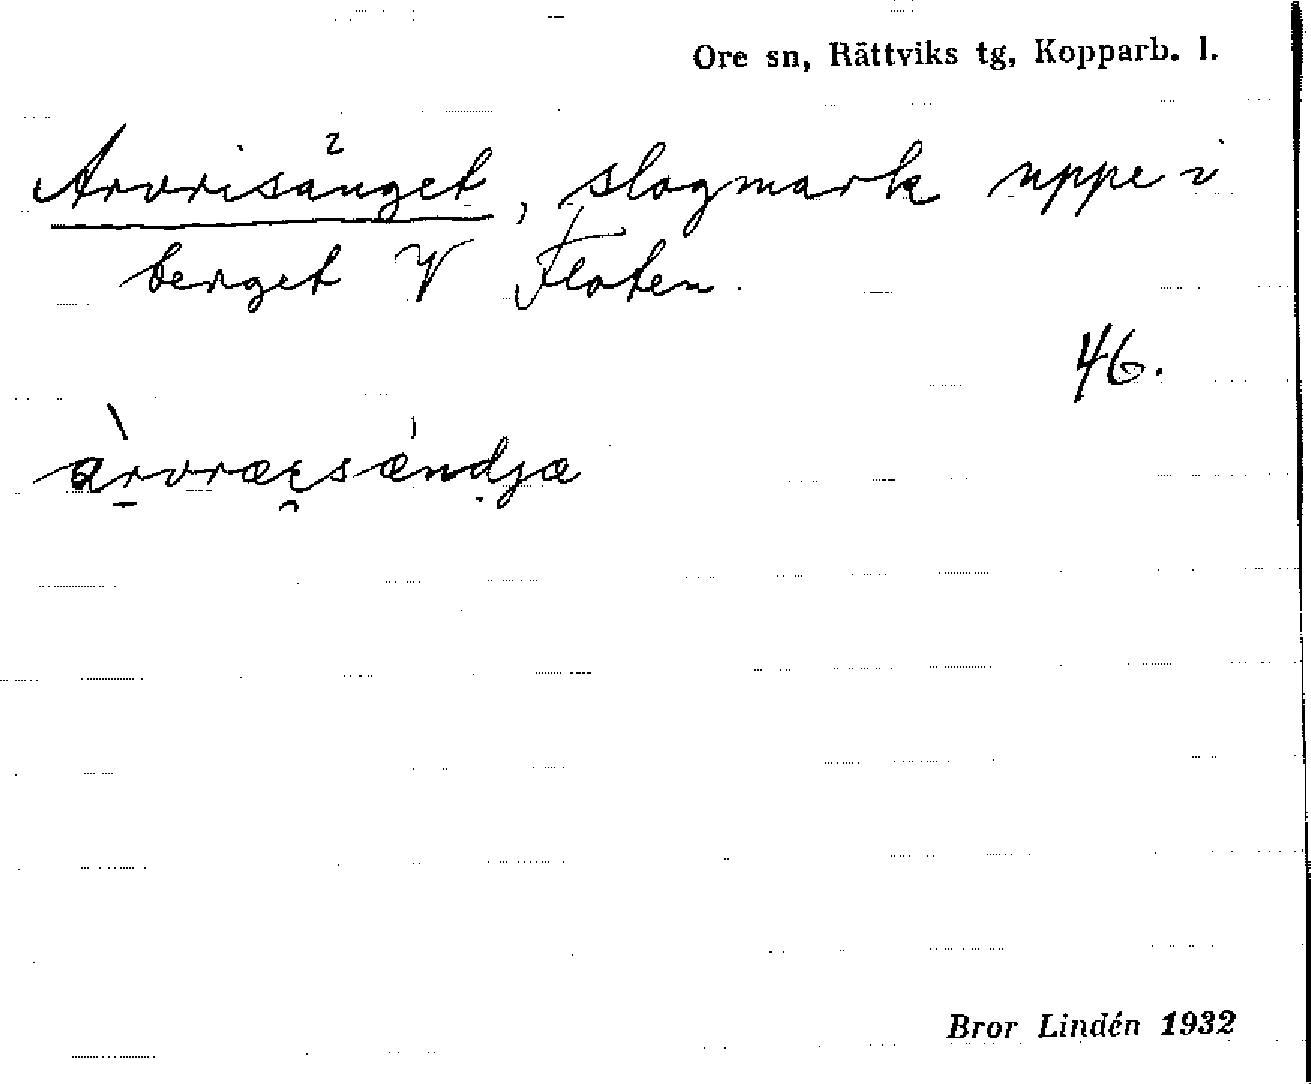 Ore sn, Rättviks tg, Kopparb. l.
Arvrisänget, slogmark uppe i
berget V Floten.
46.
àrvræɛsændjæ
Bror Lindén 1932